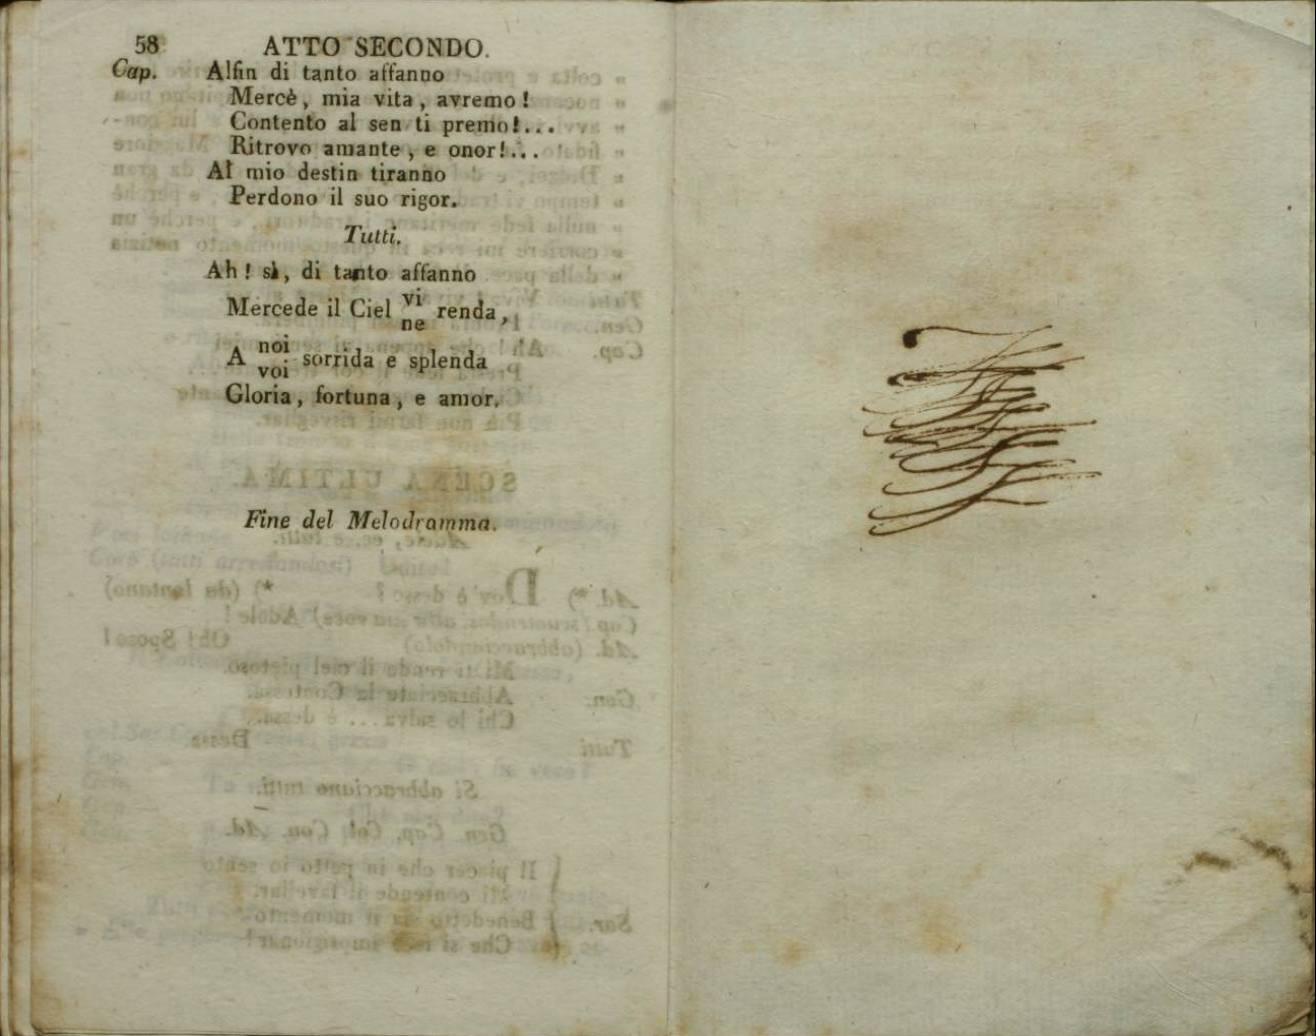 58 ATTO SECONDO.
Cap. Alfin di tanto affanno
Mercè, mia vita, avremo!
Contento al sen ti premo!...
Ritrovo amante, e onor!...
Al mio destin tiranno
Perdono il suo rigor.
Tutti.
Ah! sì, di tanto affanno
Mercede il Ciel vi renda,
ne
A noi sorrida e splenda
voi
Gloria, fortuna, e amor.
Fine del Melodramma.